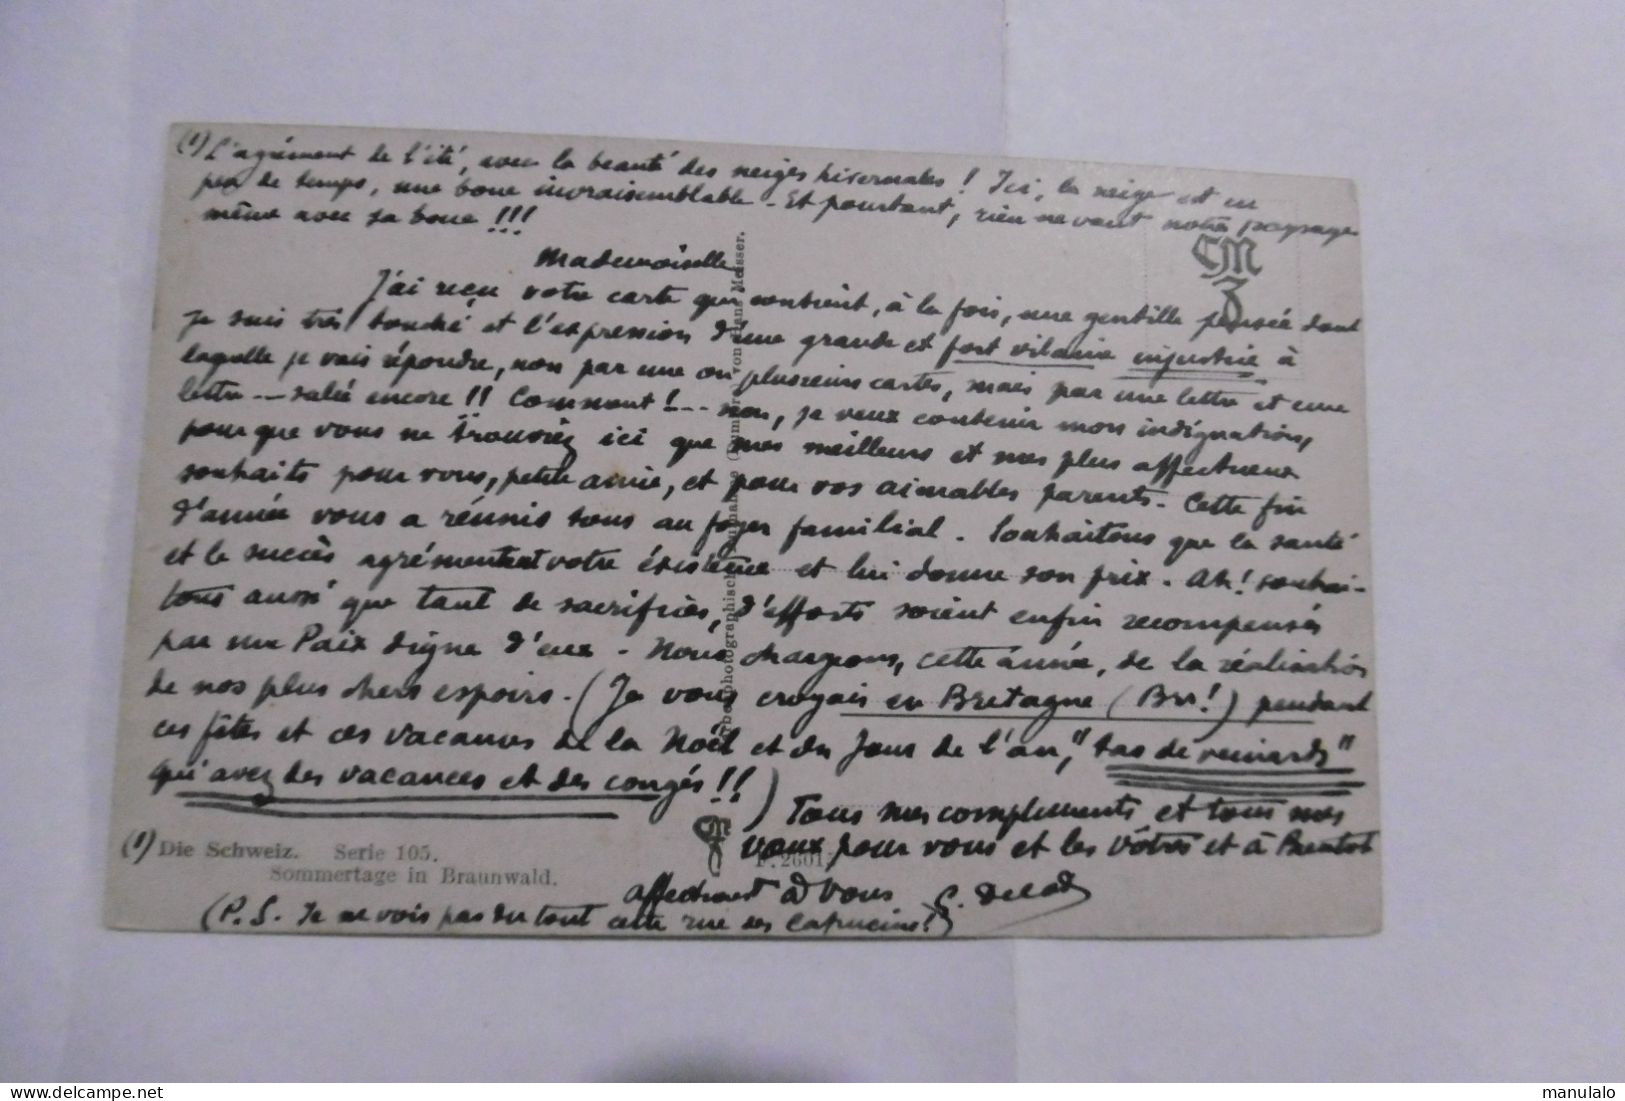 (1) L'agrément de l'été, avec la beauté des neiges hivernales ! Ici, la neige est en
peu de temps, une boue invraisemblable - Et pourtant, rien ne vaut notre paysage
même avec sa boue !!!
Mademoiselle
J'ai reçu votre carte qui contient, à la fois, une gentille pensée dont
je suis très touché et l'expression d'une grande et fort vilaine injustice à
laquelle je vais répondre, non par une ou plusieurs cartes, mais par une lettre et une
lettre --- salée encore !! Comment ! --- non, je veux contenir mon indignation,
pour que vous ne trouviez ici que mes meilleurs et mes plus affectueux
souhaits pour vous, petite amie, et pour vos aimables parents - Cette fin
d'année vous a réunis tous au foyer familial. Souhaitons que la santé
et le succès agrémentent votre existence et lui donne son prix. Ah ! souhai-
tons aussi que tant de sacrifices, d'efforts soient enfin recompensés
par une Paix digne d'eux - Nous chargeons, cette année, de la réalisation
de nos plus chers espoirs. (Je vous croyais en Bretagne (Brr!) pendant
ces fêtes et ces vacances de la Noël et du Jour de l'an, "tas de veinards"
qui avez des vacances et des congés !!)
Tous mes compliments et tous mes
vœux pour vous et les vôtres et à Bientot
affectueust à vous C.
(P.S. Je ne vois pas du tout cette rue des Capucins!)
CM
3
Hans Meisser.
(1) Die Schweiz. Serie 105.
Sommertage in Braunwald.
F. 2601